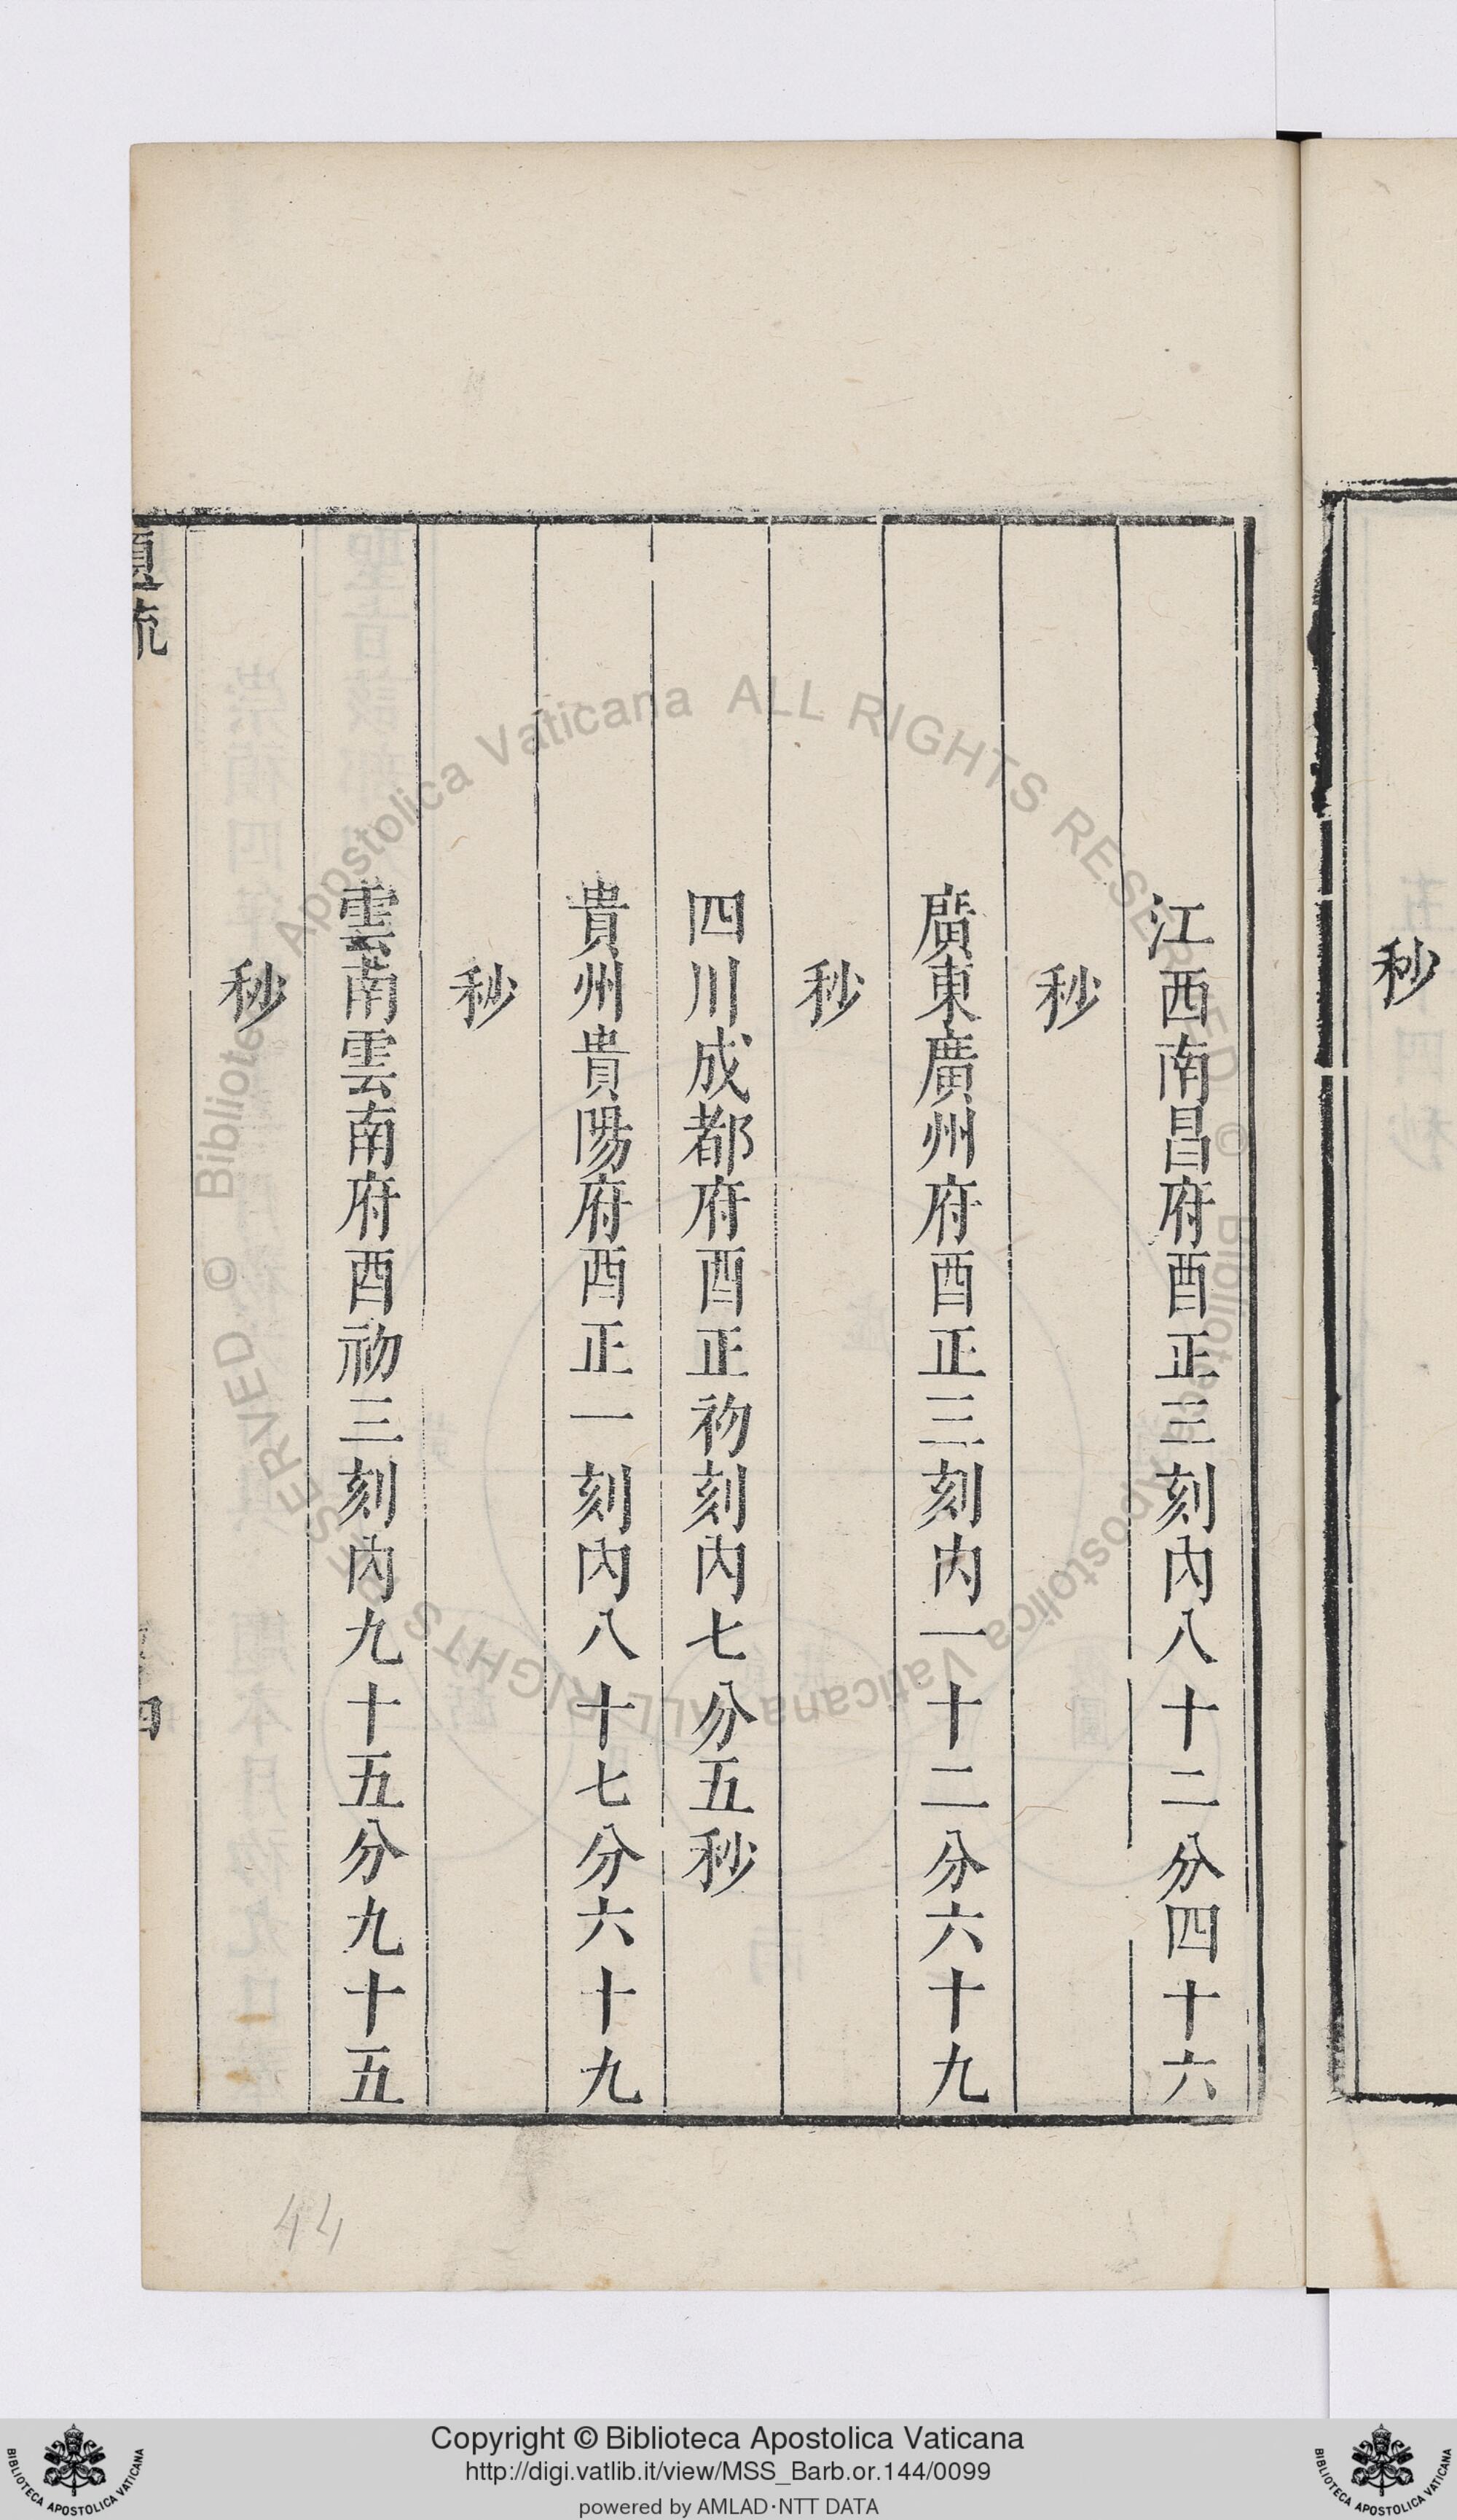 秒
江西南昌府酉正三刻內八十二分四十六
秒
廣東廣州府酉正三刻內一十二分六十九
秒
四川成都府酉正初刻內七分五秒
貴州貴陽府酉正一刻內八十七分六十九
秒
雲南雲南府酉初三刻內九十五分九十五
秒
四
44
© Biblioteca Apostolica Vaticana ALL RIGHTS RESERVED
© Biblioteca Apostolica Vaticana ALL RIGHTS RESERVED
Copyright © Biblioteca Apostolica Vaticana
http://digi.vatlib.it/view/MSS_Barb.or.144/0099
powered by AMLAD·NTT DATA
BIBLIOTECA APOSTOLICA VATICANA
BIBLIOTECA APOSTOLICA VATICANA